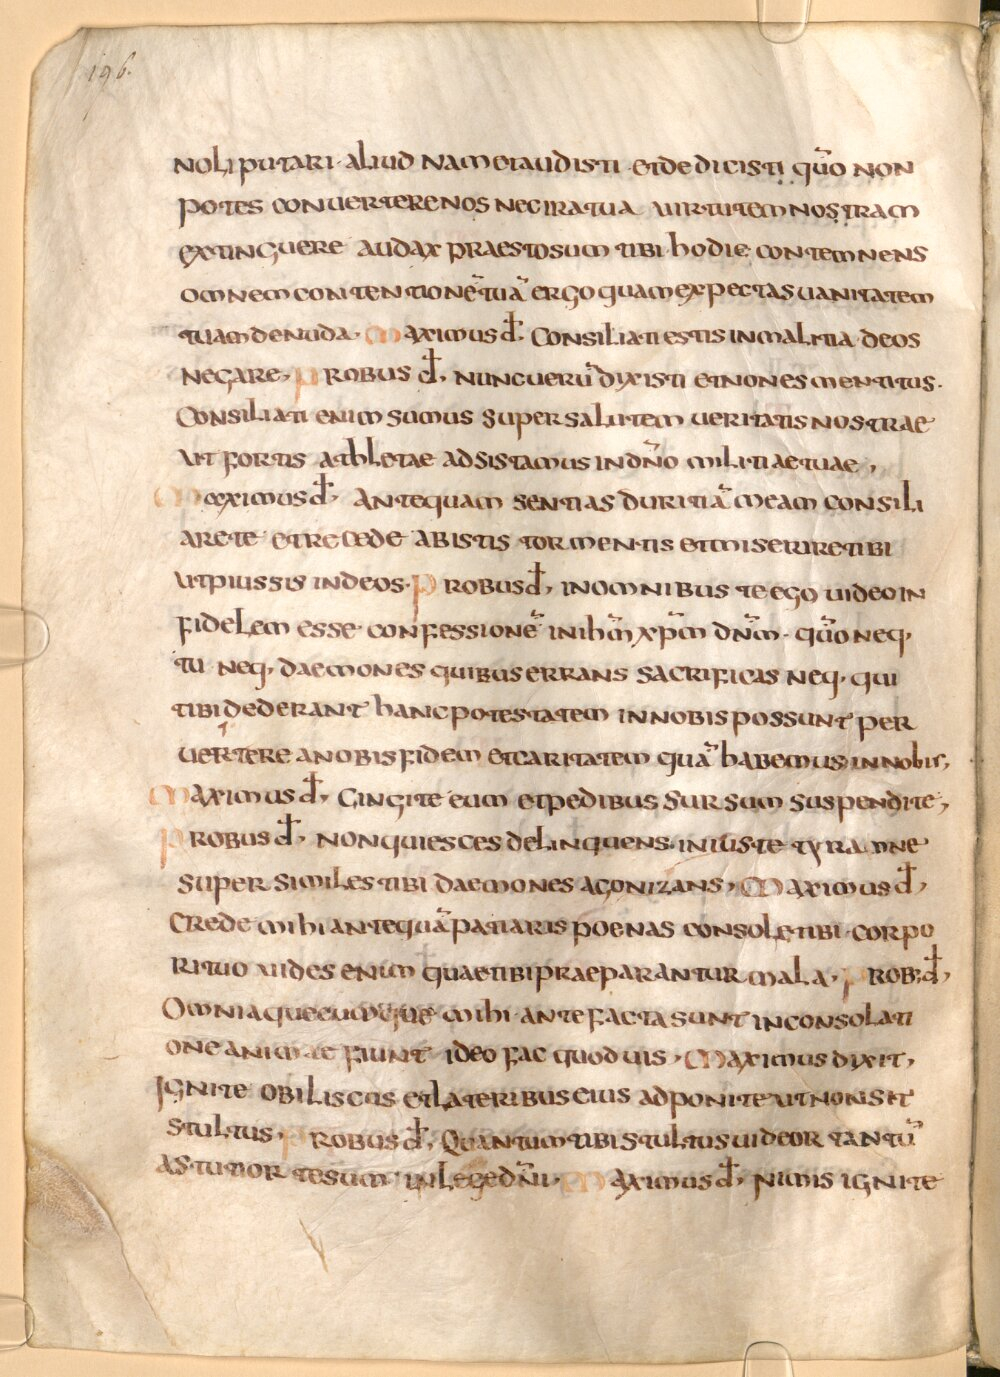 196.
noli putari aliud nam et audisti et dedicisti quō non
potes conuertere nos nec ira tua uirtutem nostram
extinguere audax praesto sum tibi hodie contemnens
omnem contentionē tuā ergo quam expectas uanitatem
tuam denuda. Maximus đ. Consiliati estis in malitia deos
negare, Probus đ, nunc uerū dixisti et non es mentitus.
Consiliati enim sumus super salutem ueritatis nostrae
ut fortis athletae adsistamus in dn̄o militiae tuae,
Maximus đ, Antequam sentias duritiā meam consili
are te et recede ab istis tormentis et miserire tibi
ut pius sis in deos. Probus đ, in omnibus te ego uideo in
fidelem esse confessionē in ihm̄ xpm̄ dnm̄. quō neq,
tu neq, daemones quibus errans sacrificas neq, qui
tibi dederant hanc potestatem in nobis possunt per
uertere a nobis fidem et caritatem quā habemus in nobis,
Maximus đ, Cingite eum et pedibus sursum suspendite,
Probus đ, non quiesces delinquens iniuste tyranne
super similes tibi daemones agonizans, Maximus đ,
Crede mihi antequā patiaris poenas console tibi corpo
ri tuo uides enim quae tibi praeparantur mala, Prob; đ,
Omnia quecumque mihi ante facta sunt in consolati
one animae fiunt ideo fac quod uis, Maximus dixit,
Ignite obiliscus et lateribus eius adponite ut non sit
stultus, Probus đ, Quantum tibi stultus uideor tantū
astutior te sum in lege dn̄i, Maximus đ, Nimis ignite